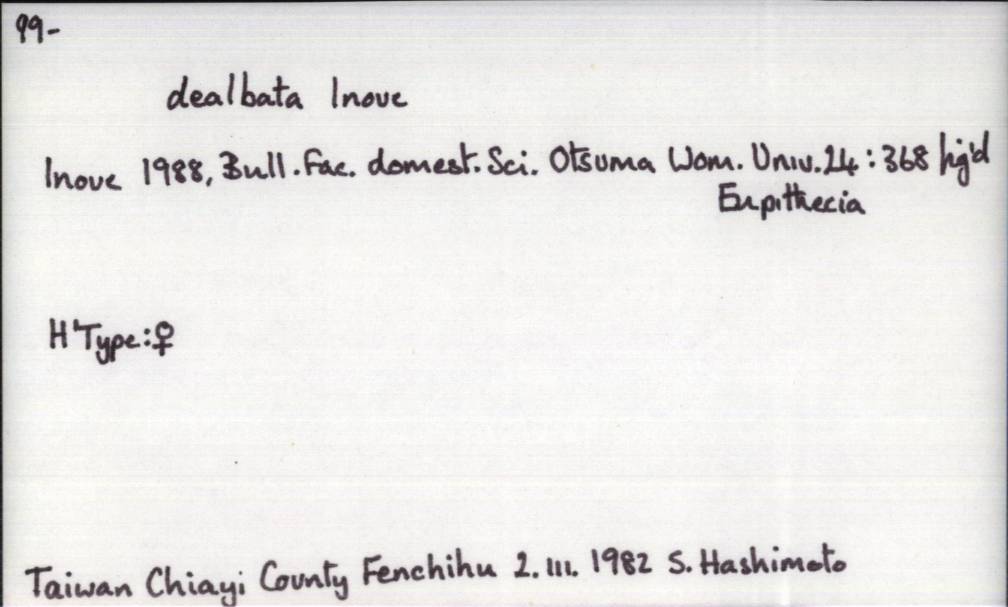 99-
dealbata Inoue
Inoue 1988, Bull. Fac. domest. Sci. Otsuma Wom. Univ. 24 : 368 fig'd
Eupithecia
H'Type: ♀
Taiwan Chiayi County Fenchihu 2. III. 1982 S. Hashimoto